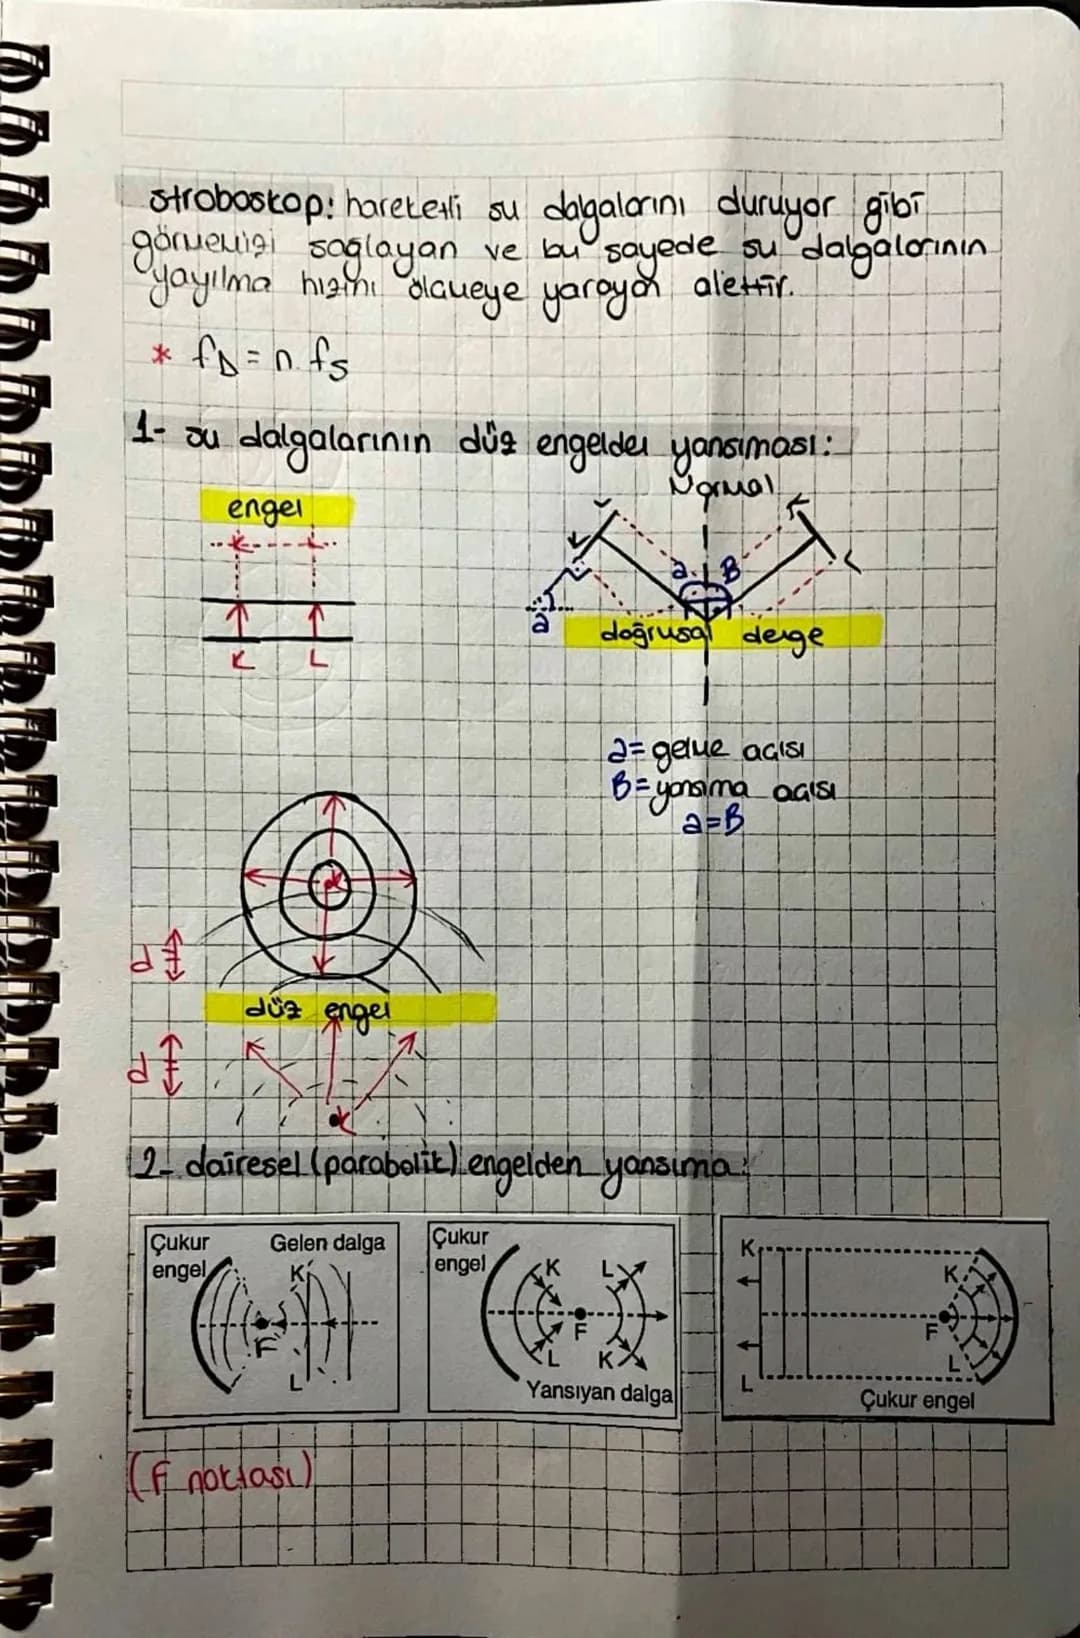 stroboskop: hareketli su dalgalarını duruyor gibi
görmemizi sağlayan ve bu sayede su dalgalarının
yayılma hızını ölçmeye yarayan alettir.
* fD = n. fs
1- su dalgalarının düz engelden yansıması:
Normal
engel
K L
K L
a B
a
K L
K L
doğrusal denge
a = gelme açısı
B = yansıma açısı
a = B
K
d
düz engel
d
K
2- dairesel (parabolik) engelden yansıma:
Çukur engel
Gelen dalga
K
F
L
Çukur engel
K L
F
L K
Yansıyan dalga
K
K
F
L
L
Çukur engel
(F noktası)